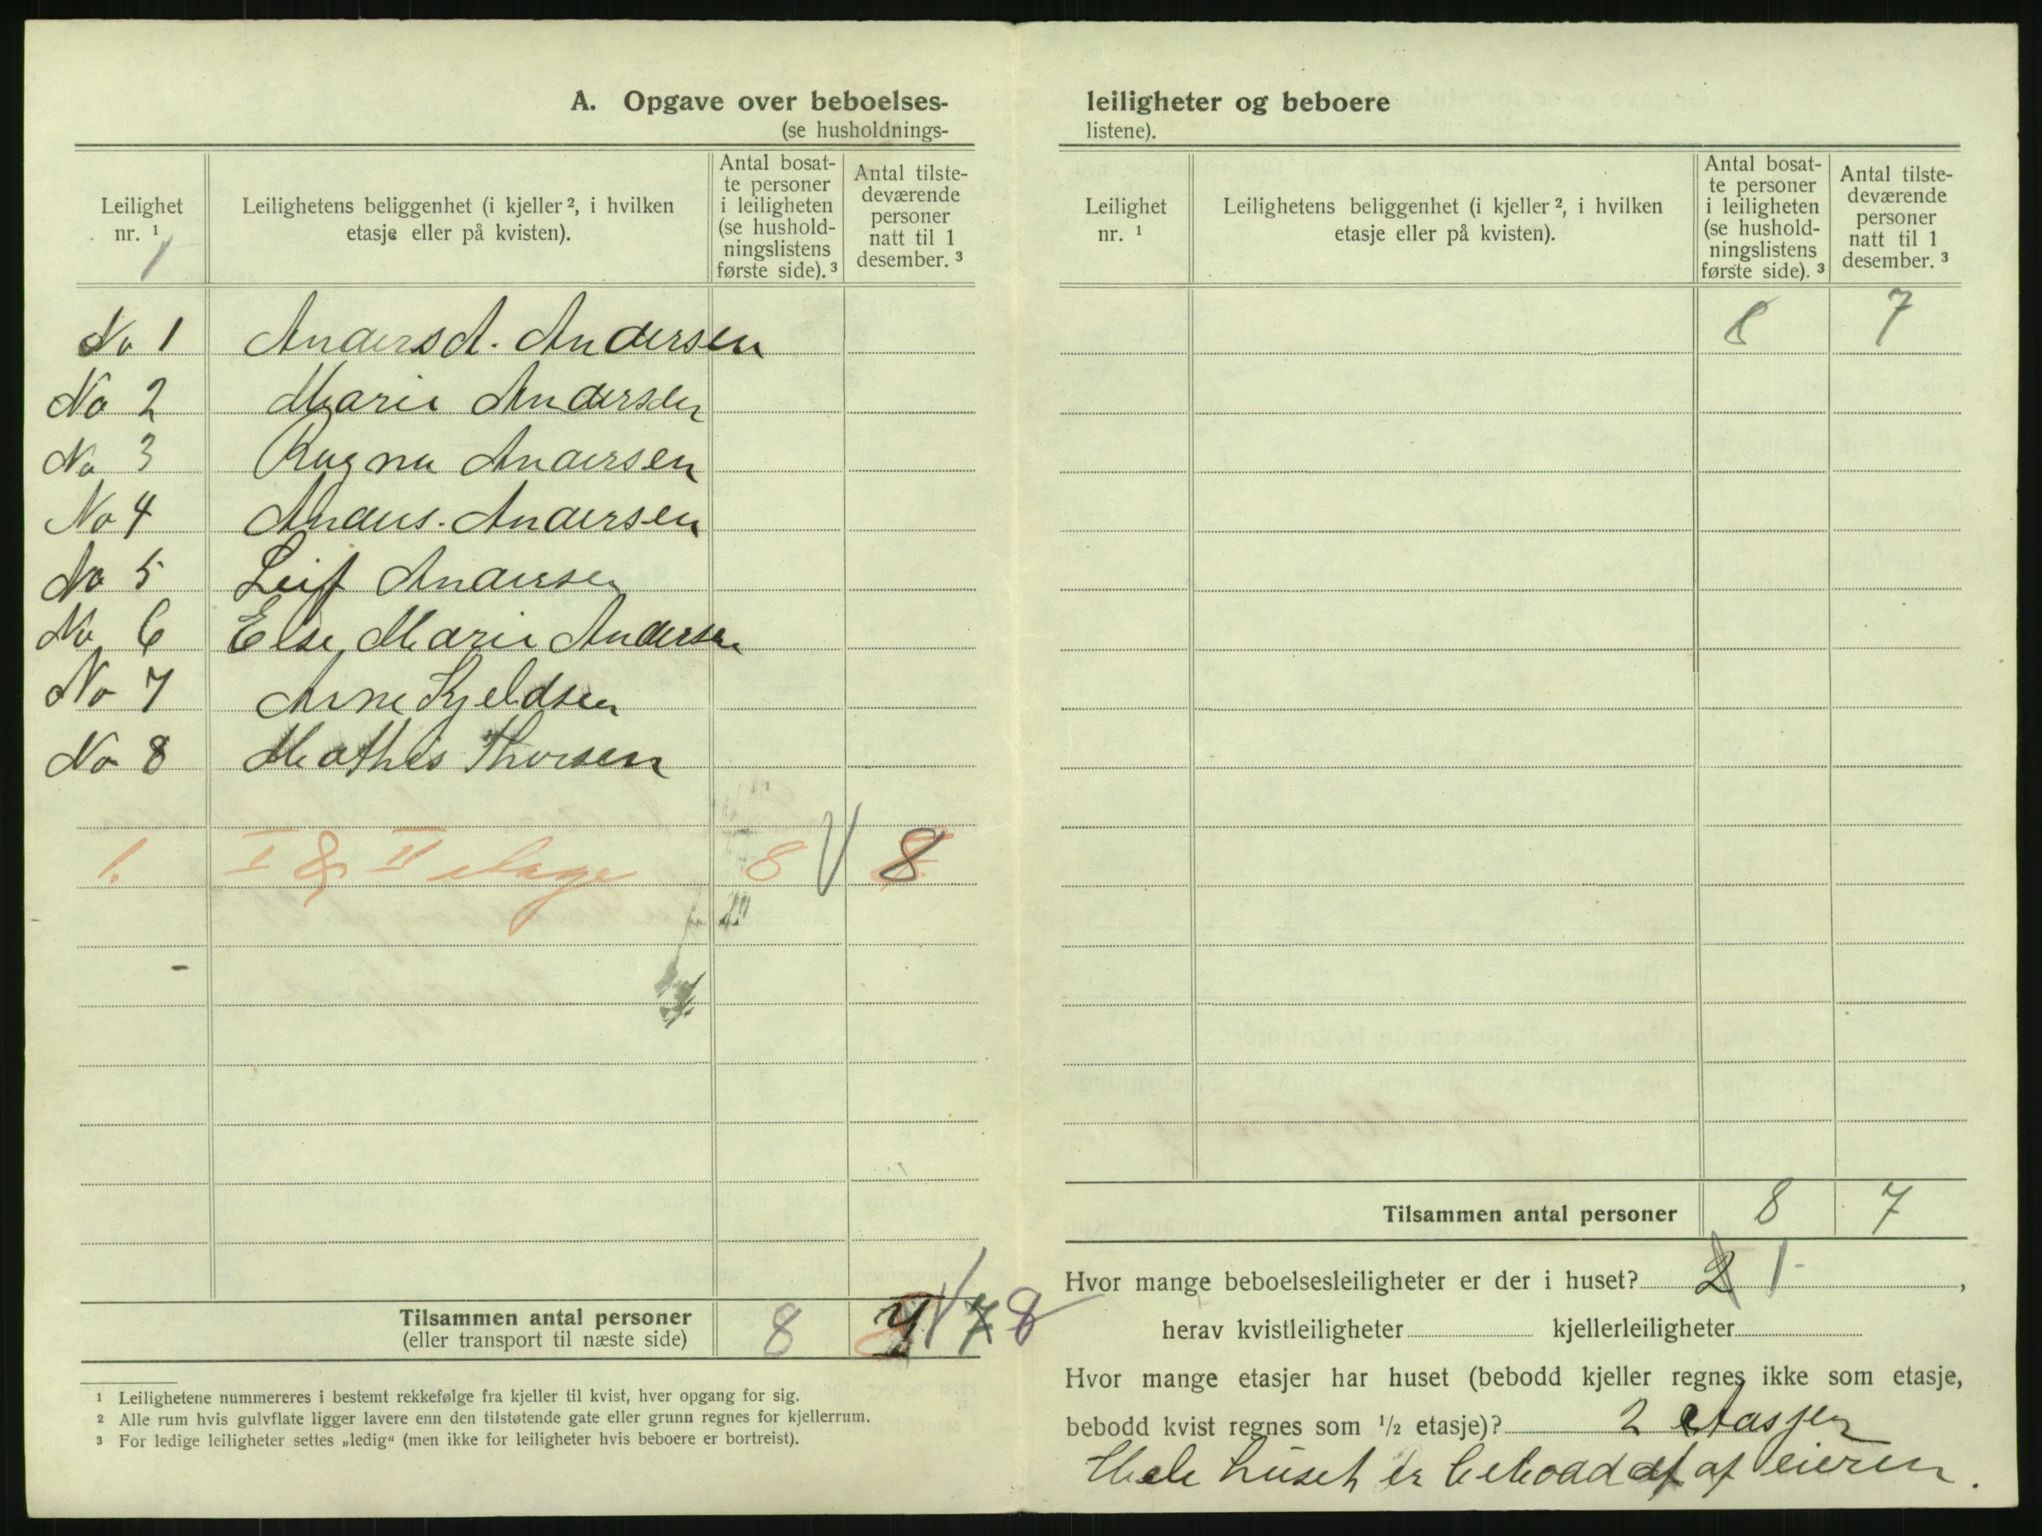 A. Opgave over beboelses-
(se husholdnings-
Leilighet
nr. ¹
1
Leilighetens beliggenhet (i kjeller ², i hvilken
etasje eller på kvisten).
Antal bosat-
te personer
i leiligheten
(se hushold-
ningslistens
første side). ³
Antal tilste-
deværende
personer
natt til 1
desember. ³
No 1 Anders A. Andersen
No 2 Marie Andersen
No 3 Ragna Andersen
No 4 Anders. Andersen
No 5 Leif Andersen
No 6 Else Marie Andersen
No 7 Arne Kjeldsen
No 8 Mathis Thorsen
1. I & II etage 8 V 8
Tilsammen antal personer
(eller transport til næste side) 8 7 8
¹ Leilighetene nummereres i bestemt rekkefølge fra kjeller til kvist, hver opgang for sig.
² Alle rum hvis gulvflate ligger lavere enn den tilstøtende gate eller grunn regnes for kjellerrum.
³ For ledige leiligheter settes „ledig“ (men ikke for leiligheter hvis beboere er bortreist).
leiligheter og beboere
listene).
Leilighet
nr. ¹
Leilighetens beliggenhet (i kjeller ², i hvilken
etasje eller på kvisten).
Antal bosat-
te personer
i leiligheten
(se hushold-
ningslistens
første side). ³
Antal tilste-
deværende
personer
natt til 1
desember. ³
8 7
Tilsammen antal personer 8 7
Hvor mange beboelsesleiligheter er der i huset? 2 1 ,
herav kvistleiligheter kjellerleiligheter
Hvor mange etasjer har huset (bebodd kjeller regnes ikke som etasje,
bebodd kvist regnes som ½ etasje)? 2 etasjer
Hele huset er beboad af af eieren.